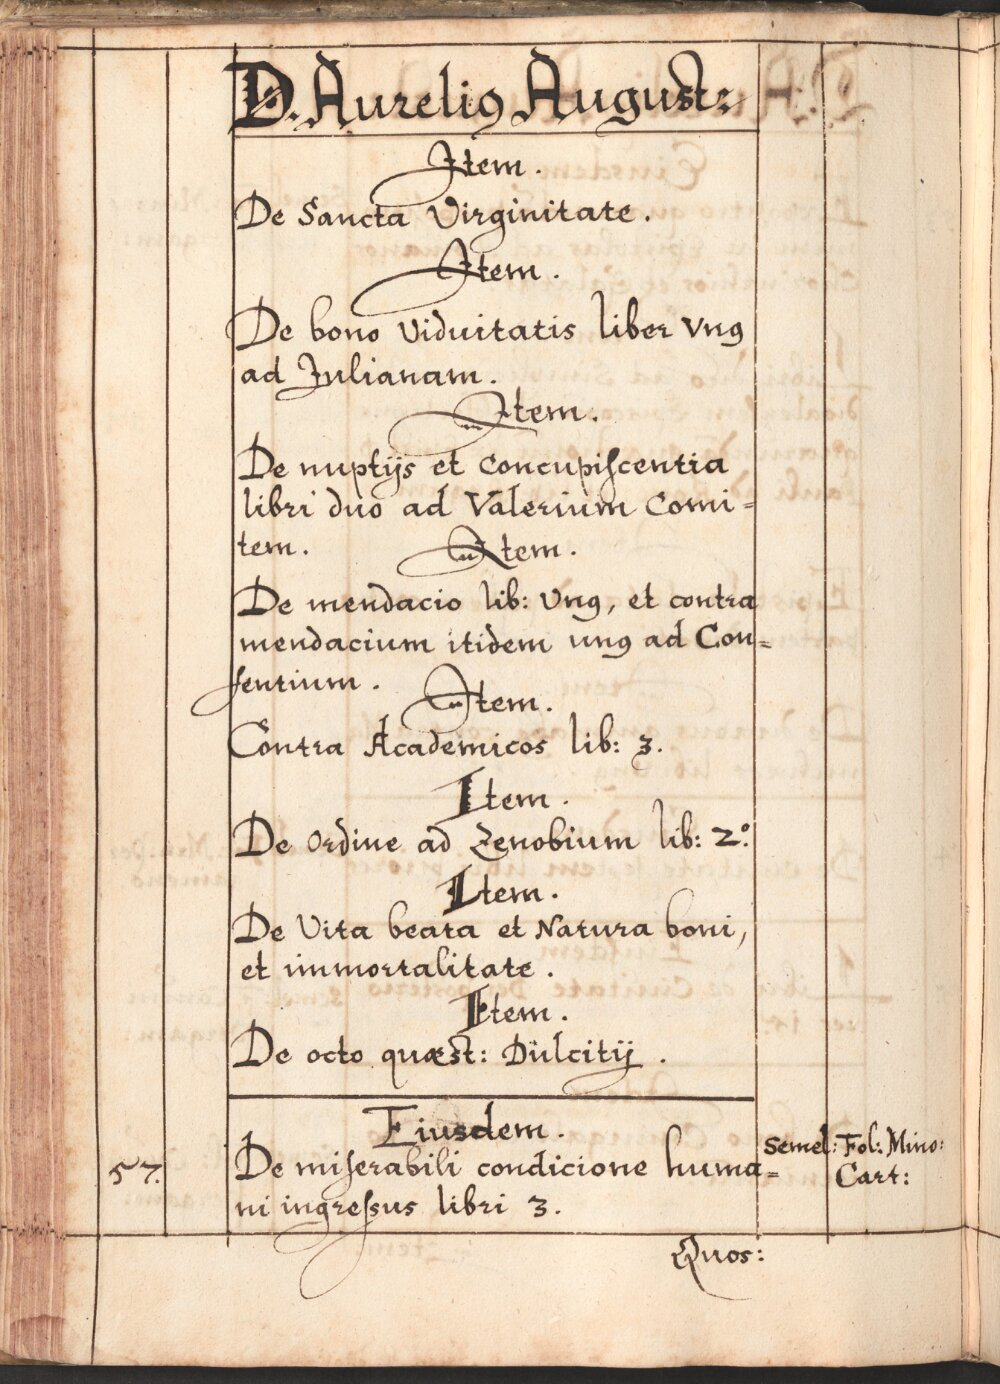 D. Aureliꝰ August:
Item.
De Sancta Virginitate.
Item.
De bono Viduitatis liber Vnꝰ
ad Julianam.
Item.
De nuptijs et concupiſcentia
libri duo ad Valerium Comi=
tem. Item.
De mendacio lib: Vnꝰ, et contra
mendacium itidem unꝰ ad Con=
ſentium.
Item.
Contra Academicos lib: 3.
Item.
De Ordine ad Zenobium lib: 2º:
Item.
De Vita beata et Natura boni,
et immortalitate.
Item.
De octo quæst: Dulcitij.
Eiusdem.
57. De miſerabili condicione huma= Semel: Fol: Mino:
ni ingreſsus libri 3. Cart:
Quos: